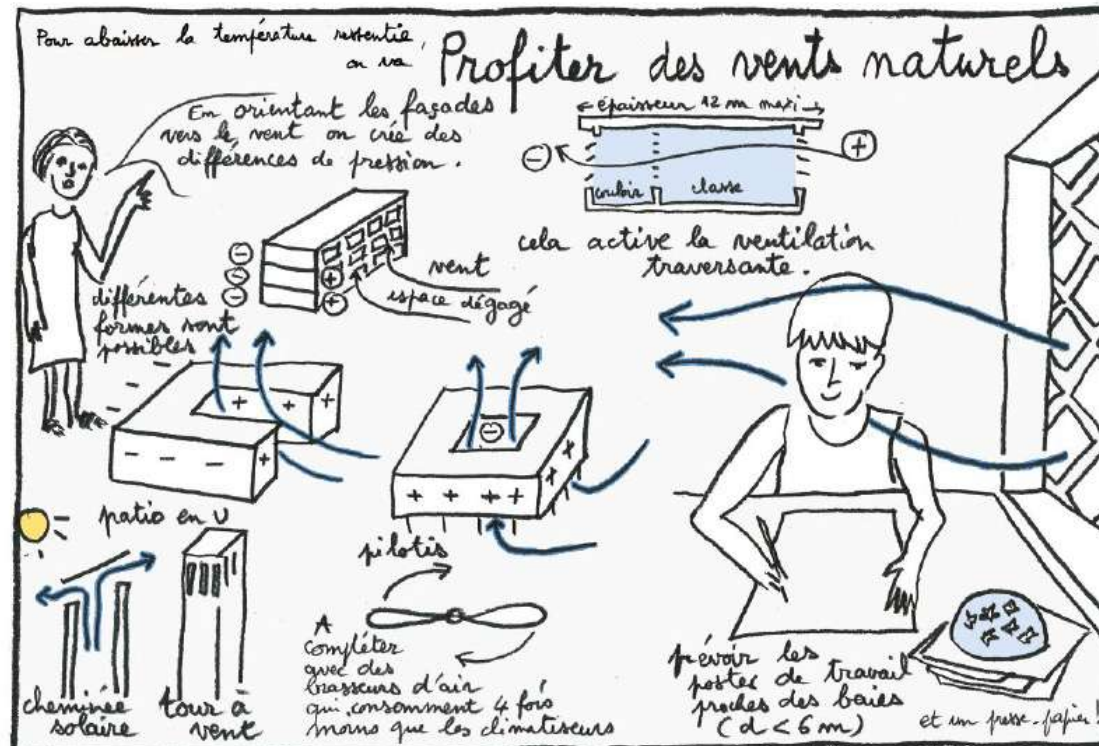 Pour abaisser la température ressentie,
on va
Profiter des vents naturels
En orientant les façades
vers le vent on crée des
différences de pression.
← épaisseur 12 m maxi →
- +
couloir classe
cela active la ventilation
traversante.
vent
espace dégagé
- - -
+ +
différentes
formes sont
possibles
- - - -
+ + +
- - - - +
-
+ + + + + + +
patio en U
pilotis
cheminée
solaire
tour à
vent
A
compléter
avec des
brasseurs d'air
qui consomment 4 fois
moins que les climatiseurs
prévoir les
postes de travail
proches des baies
(d < 6 m)
et un presse-papier !